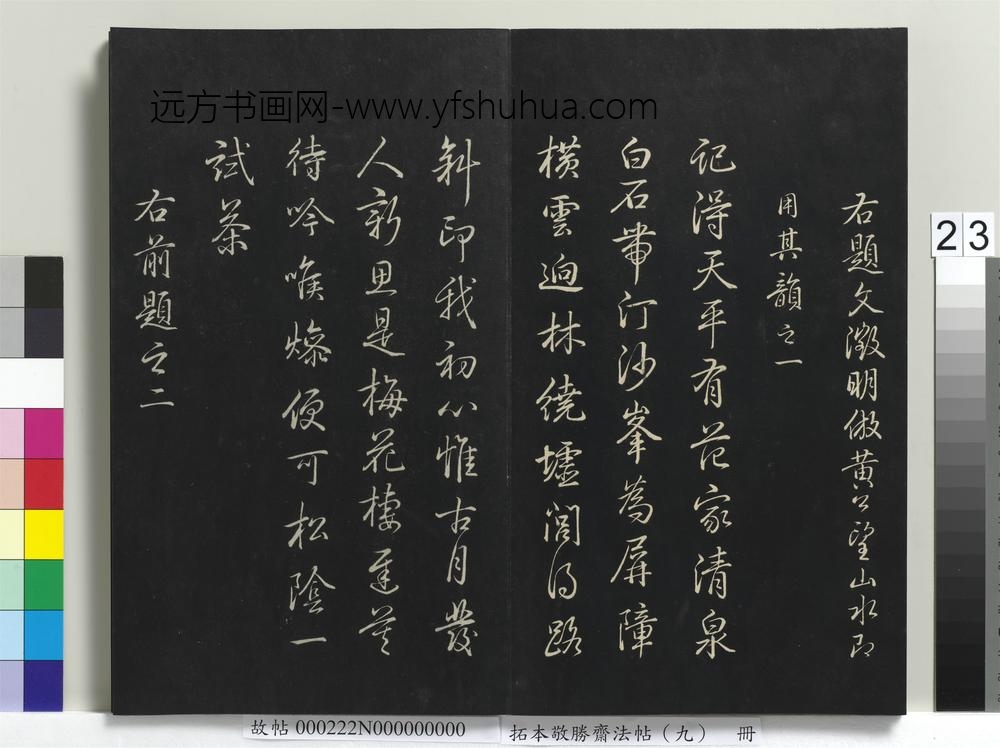 远方书画网-www.yfshuhua.com
右題文徵明倣黃公望山水即
用其韻之一
記得天平有范家清泉
白石帶汀沙峯為屏障
橫雲逈林繞墟閭得路
斜印我初心惟古月發
人新思是梅花棲遲莫
待吟喉燥便可松陰一
試茶
右前題之二
23
故帖 000222N000000000
拓本敬勝齋法帖（九） 冊